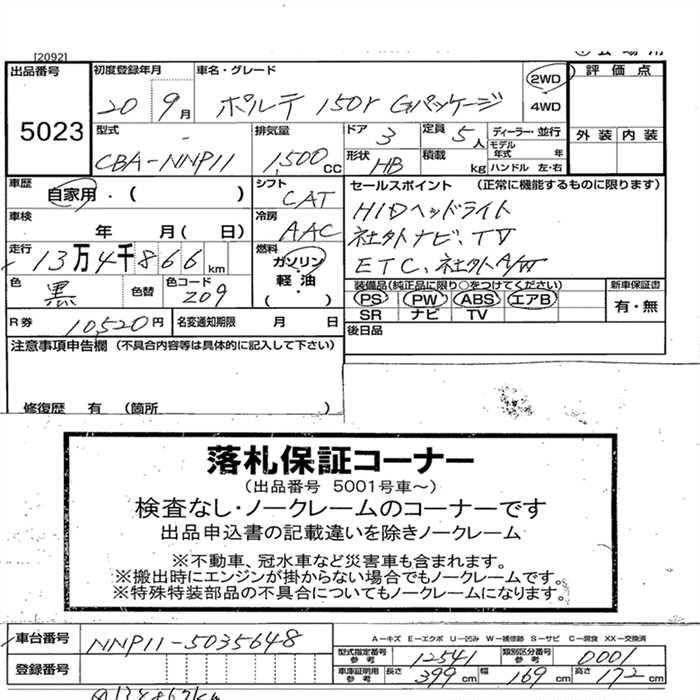 [2092]
出品番号 初度登録年月 車名・グレード 2WD 4WD 評価点
5023 20 9月 ポルテ 150r Gパッケージ
型式 排気量 ドア 3 定員 5人 ディーラー・並行 外装 内装
モデル年式 年
CBA-NNP11 1,500CC 形状 HB 積載 kg ハンドル 左・右
車歴 自家用・( ) シフト CAT セールスポイント (正常に機能するものに限ります)
車検 年 月( 日) 冷房 AAC HIDヘッドライト
社外ナビ、TV
走行 13万4千866km 燃料 ガソリン 軽油 ( ) ETC、社外A/W
色 黒 色替 色コード 209 装備品(純正品に限り○をつけてください) 新車保証書
PS PW ABS エアB 有・無
R券 10,520円 名変通知期限 月 日 SR ナビ TV
注意事項申告欄 (不具合内容等は具体的に記入して下さい) 後日品
修復歴 有 (箇所 )
落札保証コーナー
(出品番号 5001号車~)
検査なし・ノークレームのコーナーです
出品申込書の記載違いを除きノークレーム
※不動車、冠水車など災害車も含まれます。
※搬出時にエンジンが掛からない場合でもノークレームです。
※特殊特装部品の不具合についてもノークレームになります。
車台番号 NNP11-5035648 A-キズ E-エクボ U-凹み W-補修跡 S-サビ C-腐食 XX-交換済
型式指定番号 参考 12541 類別区分番号 参考 0001
登録番号 車庫証明用 参考 長さ 399cm 幅 169cm 高さ 172cm